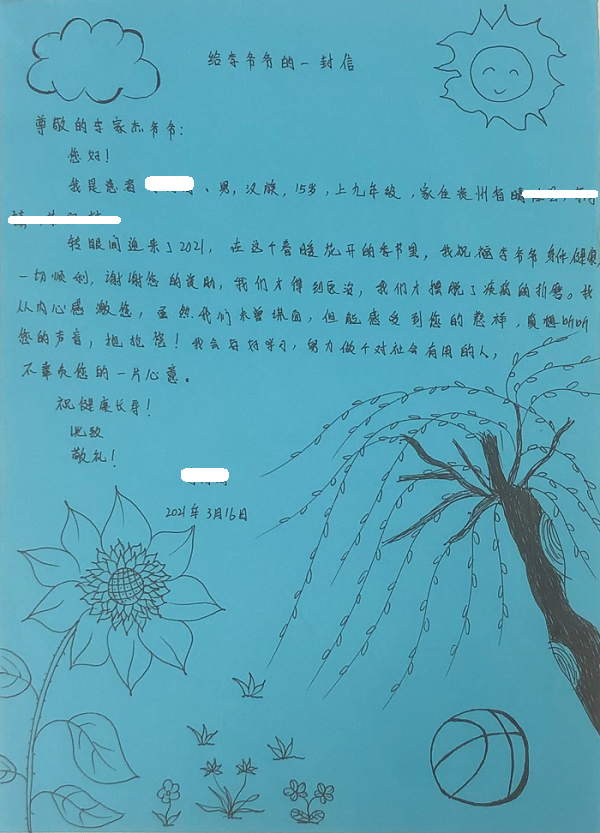 给李爷爷的一封信
尊敬的李家杰爷爷：
您好！
我是患者、男，汉族，15岁，上九年级，家住贵州省
转眼间迎来了2021，在这个春暖花开的季节里，我祝福李爷爷身体健康，
一切顺利，谢谢您的资助，我们才得到医治，我们才摆脱了疾病的折磨。我
从内心感激您，虽然我们未曾谋面，但能感受到您的慈祥，真想听听
您的声音，抱抱您！我会好好学习，努力做个对社会有用的人，
不辜负您的一片心意。
祝健康长寿！
此致
敬礼！
2021年3月16日